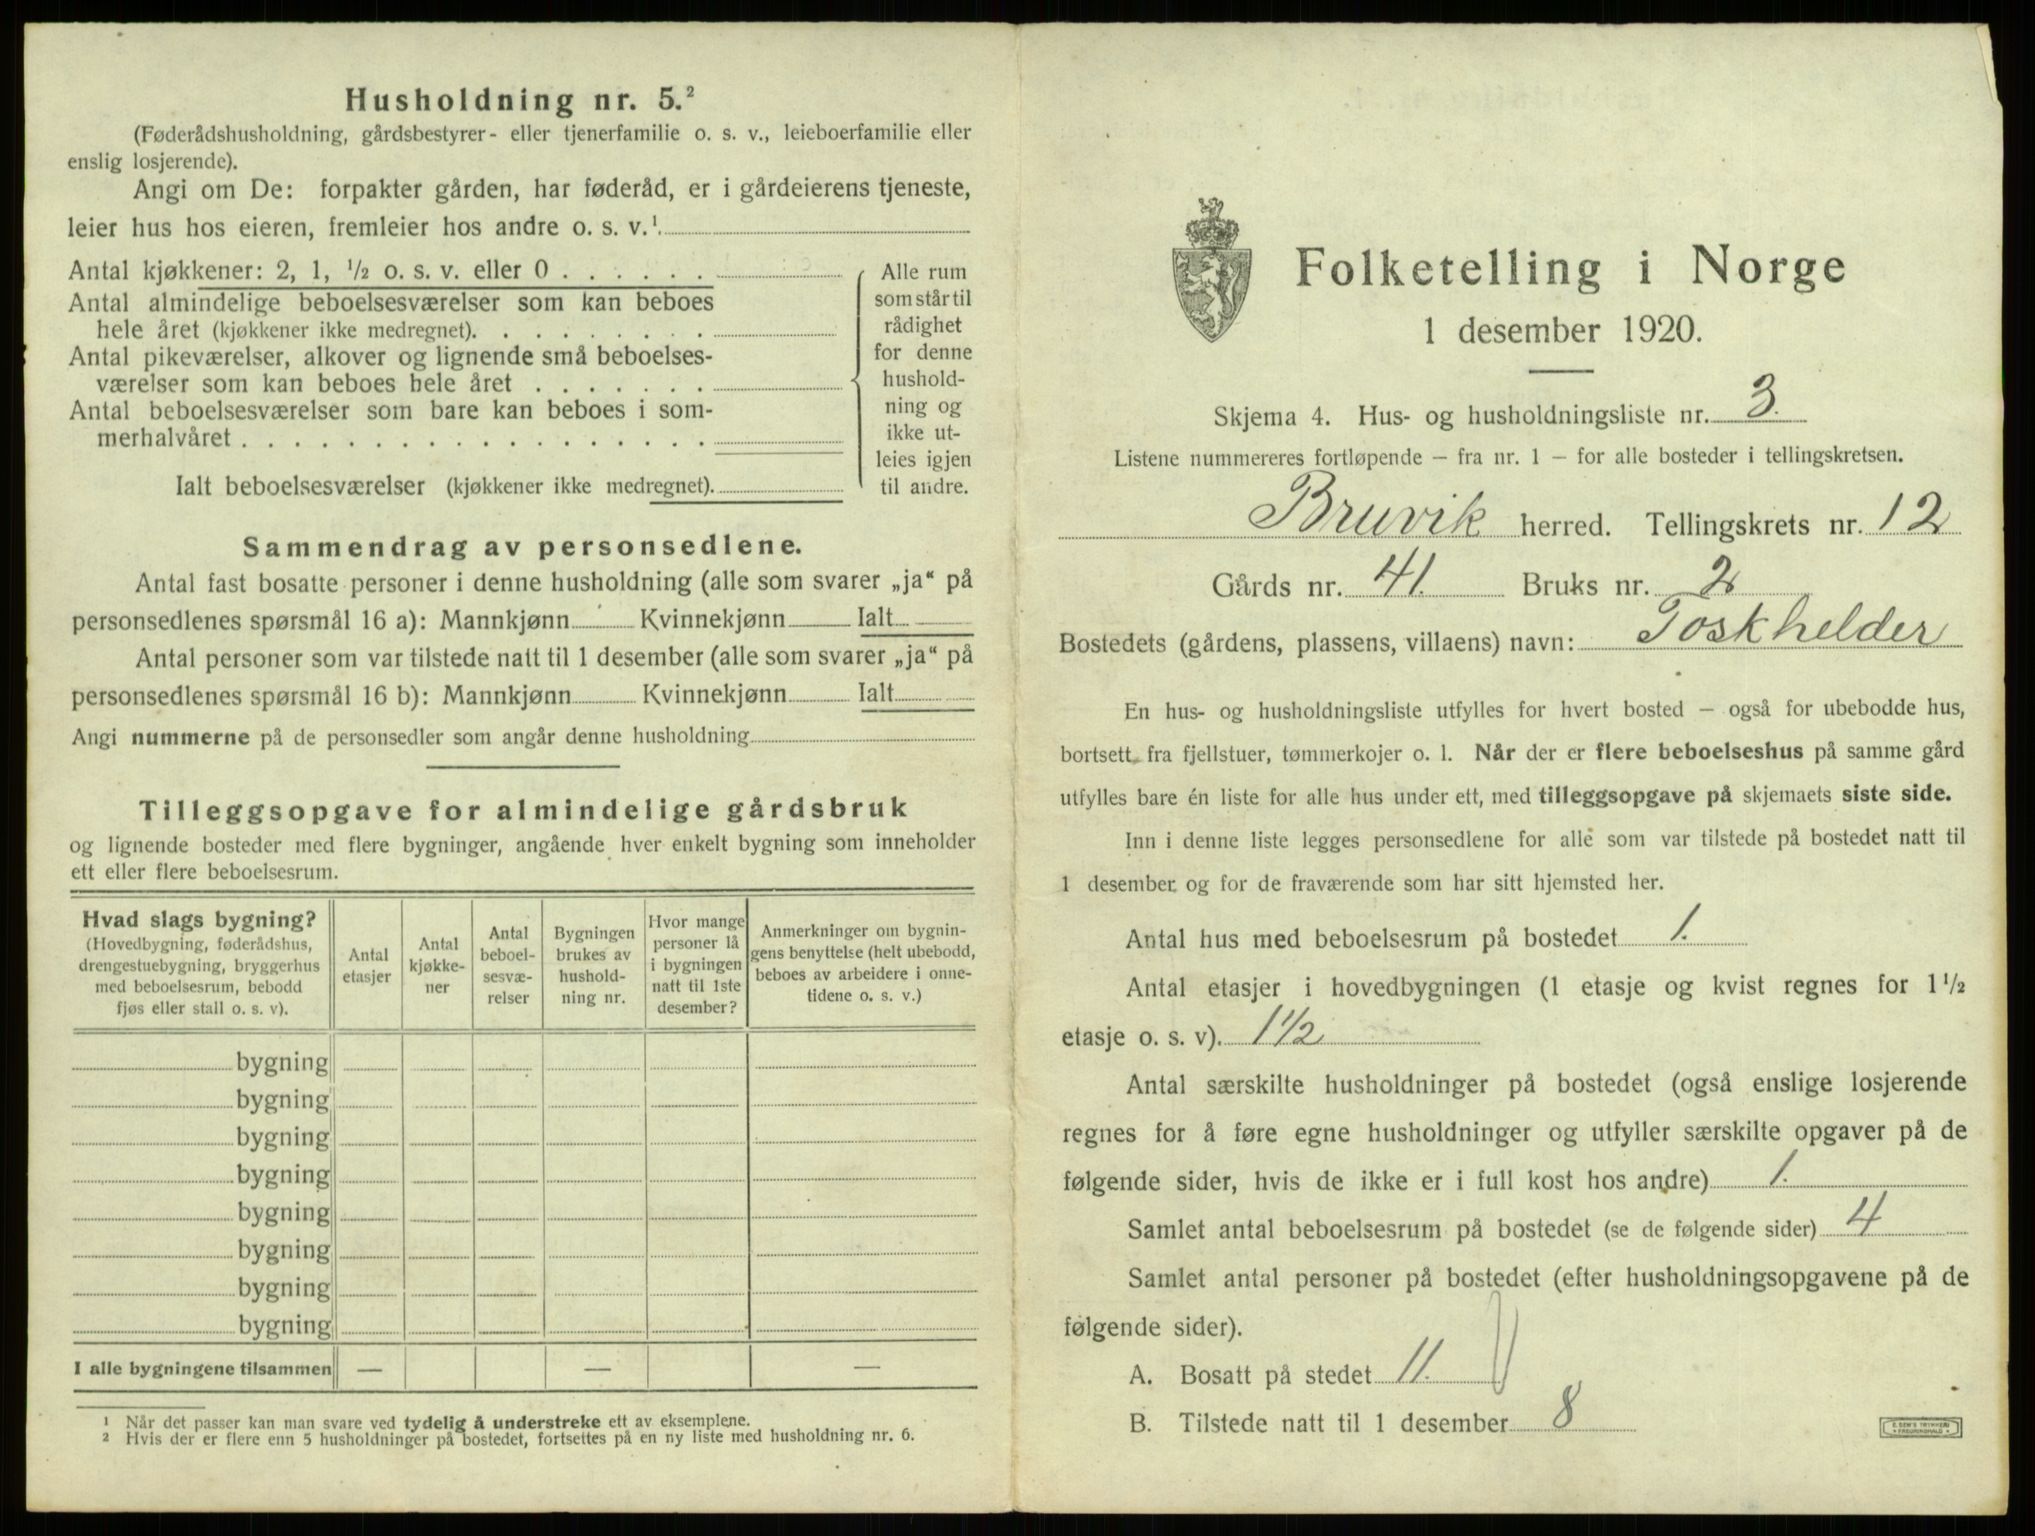 Husholdning nr. 5.²
(Føderådshusholdning, gårdsbestyrer- eller tjenerfamilie o. s. v., leieboerfamilie eller
enslig losjerende).
Angi om De: forpakter gården, har føderåd, er i gårdeierens tjeneste,
leier hus hos eieren, fremleier hos andre o. s. v.¹
Antal kjøkkener: 2, 1, ½ o. s. v. eller 0 . . . . . .
Antal almindelige beboelsesværelser som kan beboes
hele året (kjøkkener ikke medregnet). . . . . . . . .
Antal pikeværelser, alkover og lignende små beboelses-
værelser som kan beboes hele året . . . . . . .
Antal beboelsesværelser som bare kan beboes i som-
merhalvåret . . . . . . . . . . . . . . . . . .
Ialt beboelsesværelser (kjøkkener ikke medregnet).
Alle rum
som står til
rådighet
for denne
hushold-
ning og
ikke ut-
leies igjen
til andre.
Sammendrag av personsedlene.
Antal fast bosatte personer i denne husholdning (alle som svarer „ja“ på
personsedlenes spørsmål 16 a): Mannkjønn Kvinnekjønn Ialt
Antal personer som var tilstede natt til 1 desember (alle som svarer „ja“ på
personsedlenes spørsmål 16 b): Mannkjønn Kvinnekjønn Ialt
Angi nummerne på de personsedler som angår denne husholdning
Tilleggsopgave for almindelige gårdsbruk
og lignende bosteder med flere bygninger, angående hver enkelt bygning som inneholder
ett eller flere beboelsesrum.
Hvad slags bygning?
(Hovedbygning, føderådshus,
drengestuebygning, bryggerhus
med beboelsesrum, bebodd
fjøs eller stall o. s. v).
Antal
etasjer
Antal
kjøkke-
ner
Antal
beboel-
sesvæ-
relser
Bygningen
brukes av
hushold-
ning nr.
Hvor mange
personer lå
i bygningen
natt til 1ste
desember?
Anmerkninger om bygnin-
gens benyttelse (helt ubebodd,
beboes av arbeidere i onne-
tidene o. s. v.)
bygning
bygning
bygning
bygning
bygning
bygning
bygning
bygning
I alle bygningene tilsammen — — —
¹ Når det passer kan man svare ved tydelig å understreke ett av eksemplene.
² Hvis der er flere enn 5 husholdninger på bostedet, fortsettes på en ny liste med husholdning nr. 6.
Folketelling i Norge
1 desember 1920.
Skjema 4. Hus- og husholdningsliste nr. 3.
Listene nummereres fortløpende – fra nr. 1 – for alle bosteder i tellingskretsen.
Bruvik herred. Tellingskrets nr. 12
Gårds nr. 41. Bruks nr. 2
Bostedets (gårdens, plassens, villaens) navn: Toskhelder
En hus- og husholdningsliste utfylles for hvert bosted – også for ubebodde hus,
bortsett fra fjellstuer, tømmerkojer o. l. Når der er flere beboelseshus på samme gård
utfylles bare én liste for alle hus under ett, med tilleggsopgave på skjemaets siste side.
Inn i denne liste legges personsedlene for alle som var tilstede på bostedet natt til
1 desember og for de fraværende som har sitt hjemsted her.
Antal hus med beboelsesrum på bostedet 1.
Antal etasjer i hovedbygningen (1 etasje og kvist regnes for 1½
etasje o. s. v). 1½
Antal særskilte husholdninger på bostedet (også enslige losjerende
regnes for å føre egne husholdninger og utfyller særskilte opgaver på de
følgende sider, hvis de ikke er i full kost hos andre) 1.
Samlet antal beboelsesrum på bostedet (se de følgende sider) 4
Samlet antal personer på bostedet (efter husholdningsopgavene på de
følgende sider).
A. Bosatt på stedet 11.
B. Tilstede natt til 1 desember 8
E. SEM'S TRYKKERI
FREDRIKSHALD